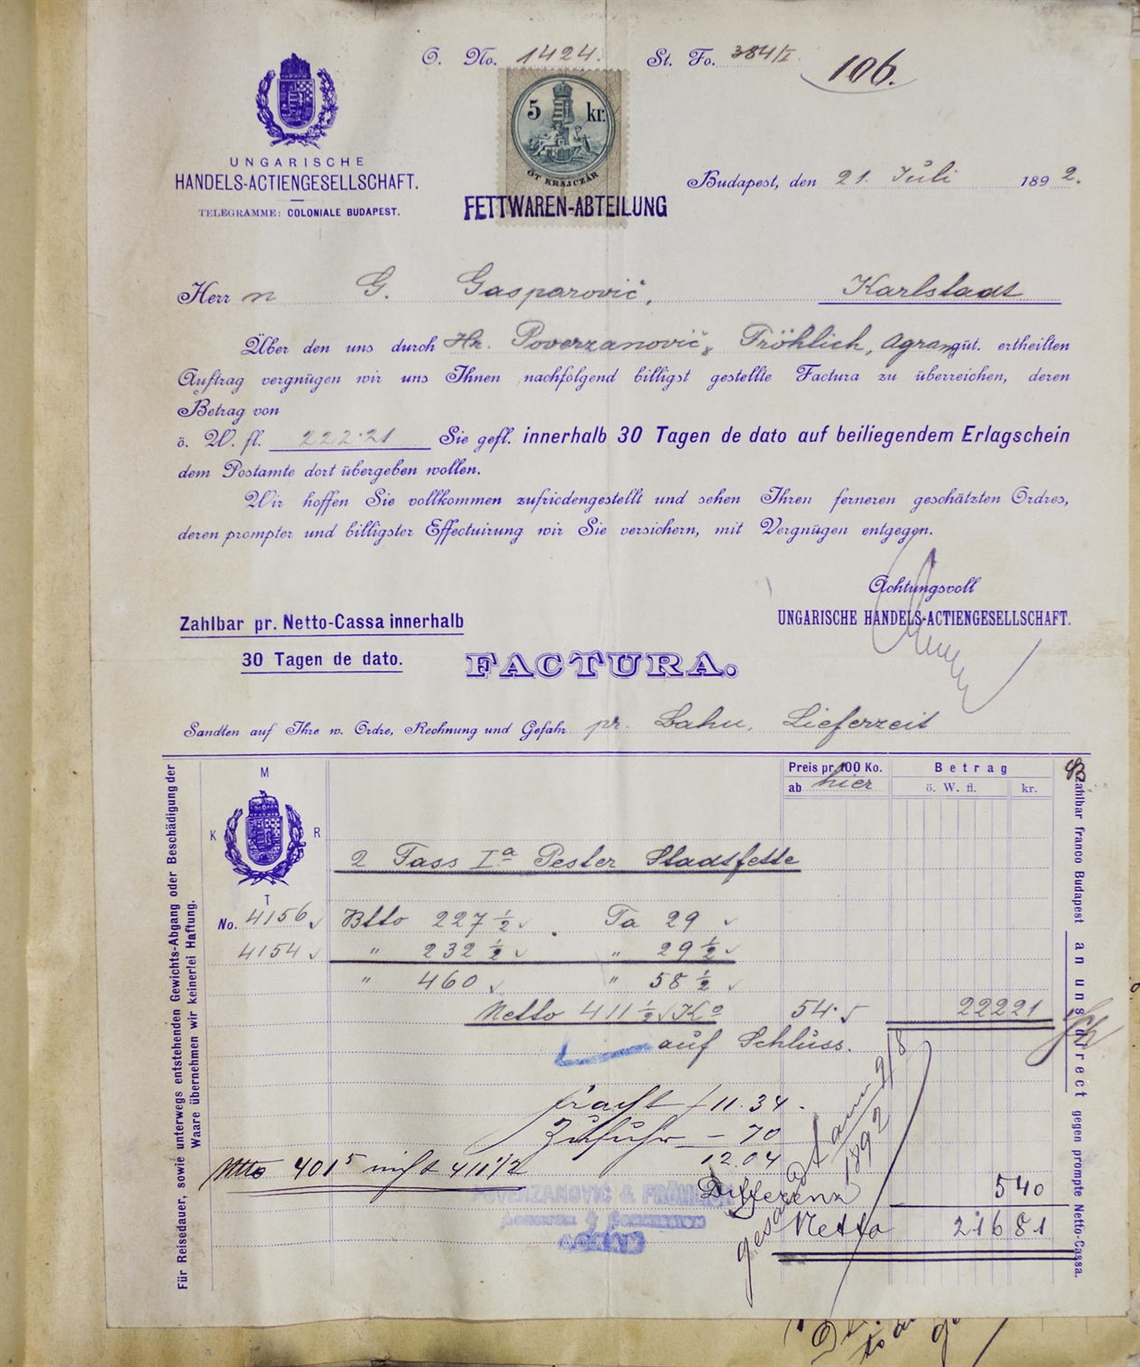 O. No. 1424. St. Fo. 384/I. 106.
5 kr.
ÖT KRAJCZÁR
UNGARISCHE
HANDELS-ACTIENGESELLSCHAFT.
TELEGRAMME: COLONIALE BUDAPEST.
FETTWAREN-ABTEILUNG
Budapest, den 21. Juli 1892.
Herrn G. Gasparović, Karlstadt
Über den uns durch Hr. Poverzanović & Fröhlich, Agram güt. ertheilten
Auftrag vergnügen wir uns Ihnen nachfolgend billigst gestellte Factura zu überreichen, deren
Betrag von
ö. W. fl. 222.21 Sie gefl. innerhalb 30 Tagen de dato auf beiliegendem Erlagschein
dem Postamte dort übergeben wollen.
Wir hoffen Sie vollkommen zufriedengestellt und sehen Ihren ferneren geschätzten Ordres,
deren prompter und billigster Effectuirung wir Sie versichern, mit Vergnügen entgegen.
Achtungsvoll
UNGARISCHE HANDELS-ACTIENGESELLSCHAFT.
Zahlbar pr. Netto-Cassa innerhalb
30 Tagen de dato.
FACTURA.
Sandten auf Ihre w. Ordre, Rechnung und Gefahr pr. Bahn, Lieferzeit
Preis pr. 100 Ko. Betrag
ab hier ö. W. fl. kr.
M
K R
T
2 Fass Iª Pester Stadtfette
No. 4156 Btto 227 ½ Ta 29
4154 " 232 ½ " 29 ½
" 460 " 58 ½
Netto 411 ½ Ko 54. 22221
auf Schluss.
Fracht f 11.34.
Zufuhr – 70
12.04
Ntto 401⁵ nicht 411 1/2
POVERZANOVIĆ & FRÖHLICH
AGENTUR & COMMISSION
AGRAM
Differenz 540
Netto 21681
1892
Für Reisedauer, sowie unterwegs entstehenden Gewichts-Abgang oder Beschädigung der
Waare übernehmen wir keinerlei Haftung.
Zahlbar franco Budapest an uns direct gegen prompte Netto-Cassa.